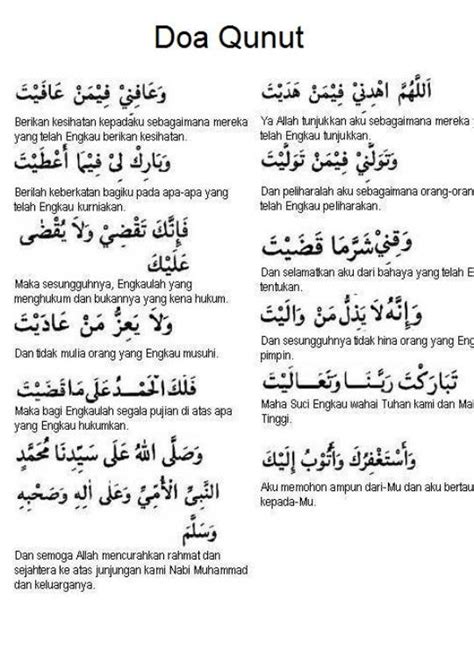 Doa Qunut
اَللّٰهُمَّ اهْدِنِيْ فِيْمَنْ هَدَيْتَ
Ya Allah tunjukkan aku sebagaimana mereka
telah Engkau tunjukkan.
وَعَافِنِيْ فِيْمَنْ عَافَيْتَ
Berikan kesihatan kepadaku sebagaimana mereka
yang telah Engkau berikan kesihatan.
وَتَوَلَّنِيْ فِيْمَنْ تَوَلَّيْتَ
Dan peliharalah aku sebagaimana orang-oran
telah Engkau peliharakan.
وَبَارِكْ لِيْ فِيْمَا أَعْطَيْتَ
Berilah keberkatan bagiku pada apa-apa yang
telah Engkau kurniakan.
وَقِنِيْ شَرَّمَا قَضَيْتَ
Dan selamatkan aku dari bahaya yang telah E
tentukan.
فَإِنَّكَ تَقْضِيْ وَلَا يُقْضٰى
عَلَيْكَ
Maka sesungguhnya, Engkaulah yang
menghukum dan bukannya yang kena hukum.
وَإِنَّهُ لَا يَذِلُّ مَنْ وَالَيْتَ
Dan sesungguhnya tidak hina orang yang Eng
pimpin.
وَلَا يَعِزُّ مَنْ عَادَيْتَ
Dan tidak mulia orang yang Engkau musuhi.
تَبَارَكْتَ رَبَّنَا وَتَعَالَيْتَ
Maha Suci Engkau wahai Tuhan kami dan Mal
Tinggi.
فَلَكَ الْحَمْدُ عَلٰى مَا قَضَيْتَ
Maka bagi Engkaulah segala pujian di atas apa
yang Engkau hukumkan.
وَأَسْتَغْفِرُكَ وَأَتُوْبُ إِلَيْكَ
Aku memohon ampun dari-Mu dan aku bertau
kepada-Mu.
وَصَلَّى اللهُ عَلَى سَيِّدِنَا مُحَمَّدٍ
النَّبِيِّ الْأُمِّيِّ وَعَلَى اٰلِهِ وَصَحْبِهِ
وَسَلَّمَ
Dan semoga Allah mencurahkan rahmat dan
sejahtera ke atas junjungan kami Nabi Muhammad
dan keluarganya.